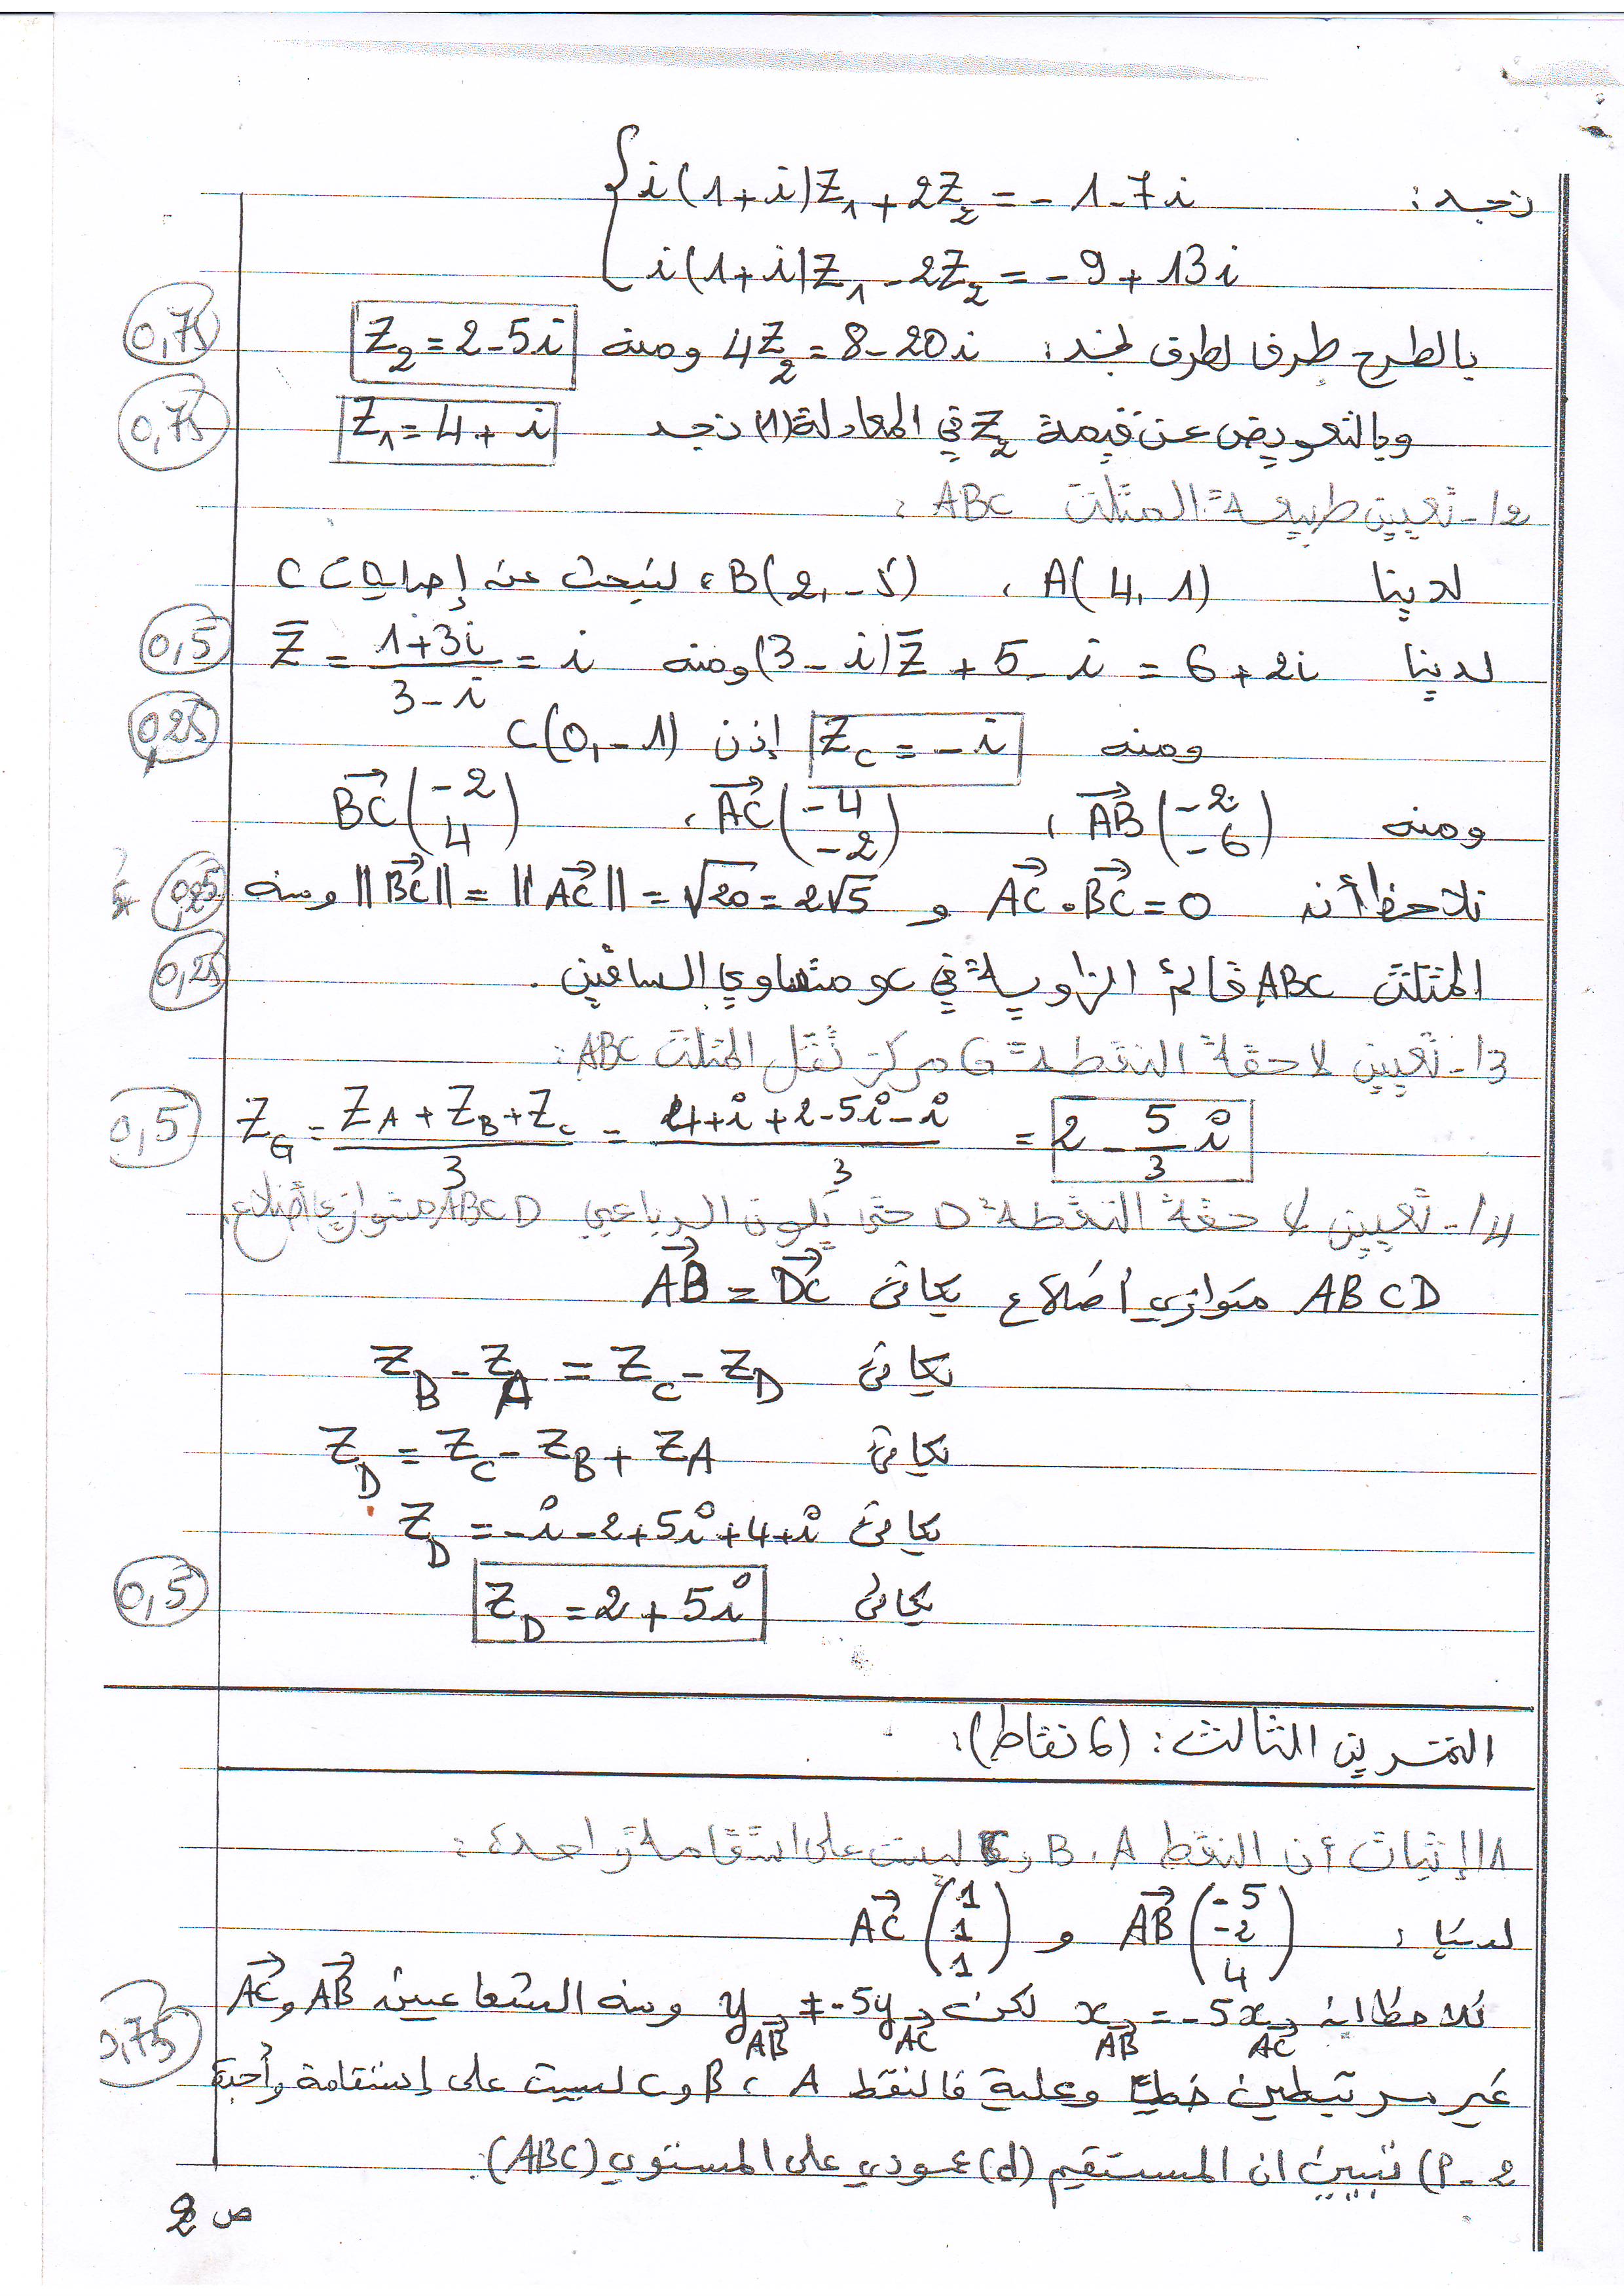 نجد: { i(1+i)Z₁ + 2Z₂ = - 1 - 7i
i(1+i)Z₁ - 2Z₂ = - 9 + 13i
بالطرح طرف لطرف نجد: 4Z₂ = 8 - 20i ومنه Z₂ = 2 - 5i 0,75
وبالتعويض عن قيمة Z₂ في المعادلة (1) نجد Z₁ = 4 + i 0,75
2/- تعيين طبيعة المثلث ABC :
لدينا A(4, 1) ، B(2, -5) ، لنبحث عن إحداثيات C
لدينا (3 - i)Z̄ + 5 - i = 6 + 2i ومنه Z̄ = (1+3i)/(3-i) = i 0,5
ومنه Z_C = - i إذن C(0, -1) 0,25
ومنه AB→ (-2 -6) ، AC→ (-4 -2) ، BC→ (-2 4)
نلاحظ أنه AC→ . BC→ = 0 و ||BC→|| = ||AC→|| = √20 = 2√5 ومنه 0,25
المثلث ABC قائم الزاوية في C و متساوي الساقين . 0,25
3/- تعيين لاحقة النقطة G مركز ثقل المثلث ABC :
Z_G = (Z_A + Z_B + Z_C)/3 = (4+i+2-5i-i)/3 = 2 - 5/3 i 0,5
4/- تعيين لاحقة النقطة D حتى يكون الرباعي ABCD متوازي أضلاع
ABCD متوازي أضلاع يكافئ AB→ = DC→
يكافئ Z_B - Z_A = Z_C - Z_D
يكافئ Z_D = Z_C - Z_B + Z_A
يكافئ Z_D = -i - 2 + 5i + 4 + i
يكافئ Z_D = 2 + 5i 0,5
التمرين الثالث : (6 نقاط) :
1/ إثبات أن النقط A ، B و C ليست على استقامة واحدة :
لدينا : AB→ (-5 -2 4) و AC→ (1 1 1)
نلاحظ انه x_AB→ = -5x_AC→ لكن y_AB→ ≠ -5y_AC→ ومنه الشعاعين AB→ و AC→ 0,75
غير مرتبطين خطيا وعليه فالنقط A ، B و C ليست على إستقامة واحدة
2 - P) نبين ان المستقيم (d) عمودي على المستوي (ABC) :
ص 2